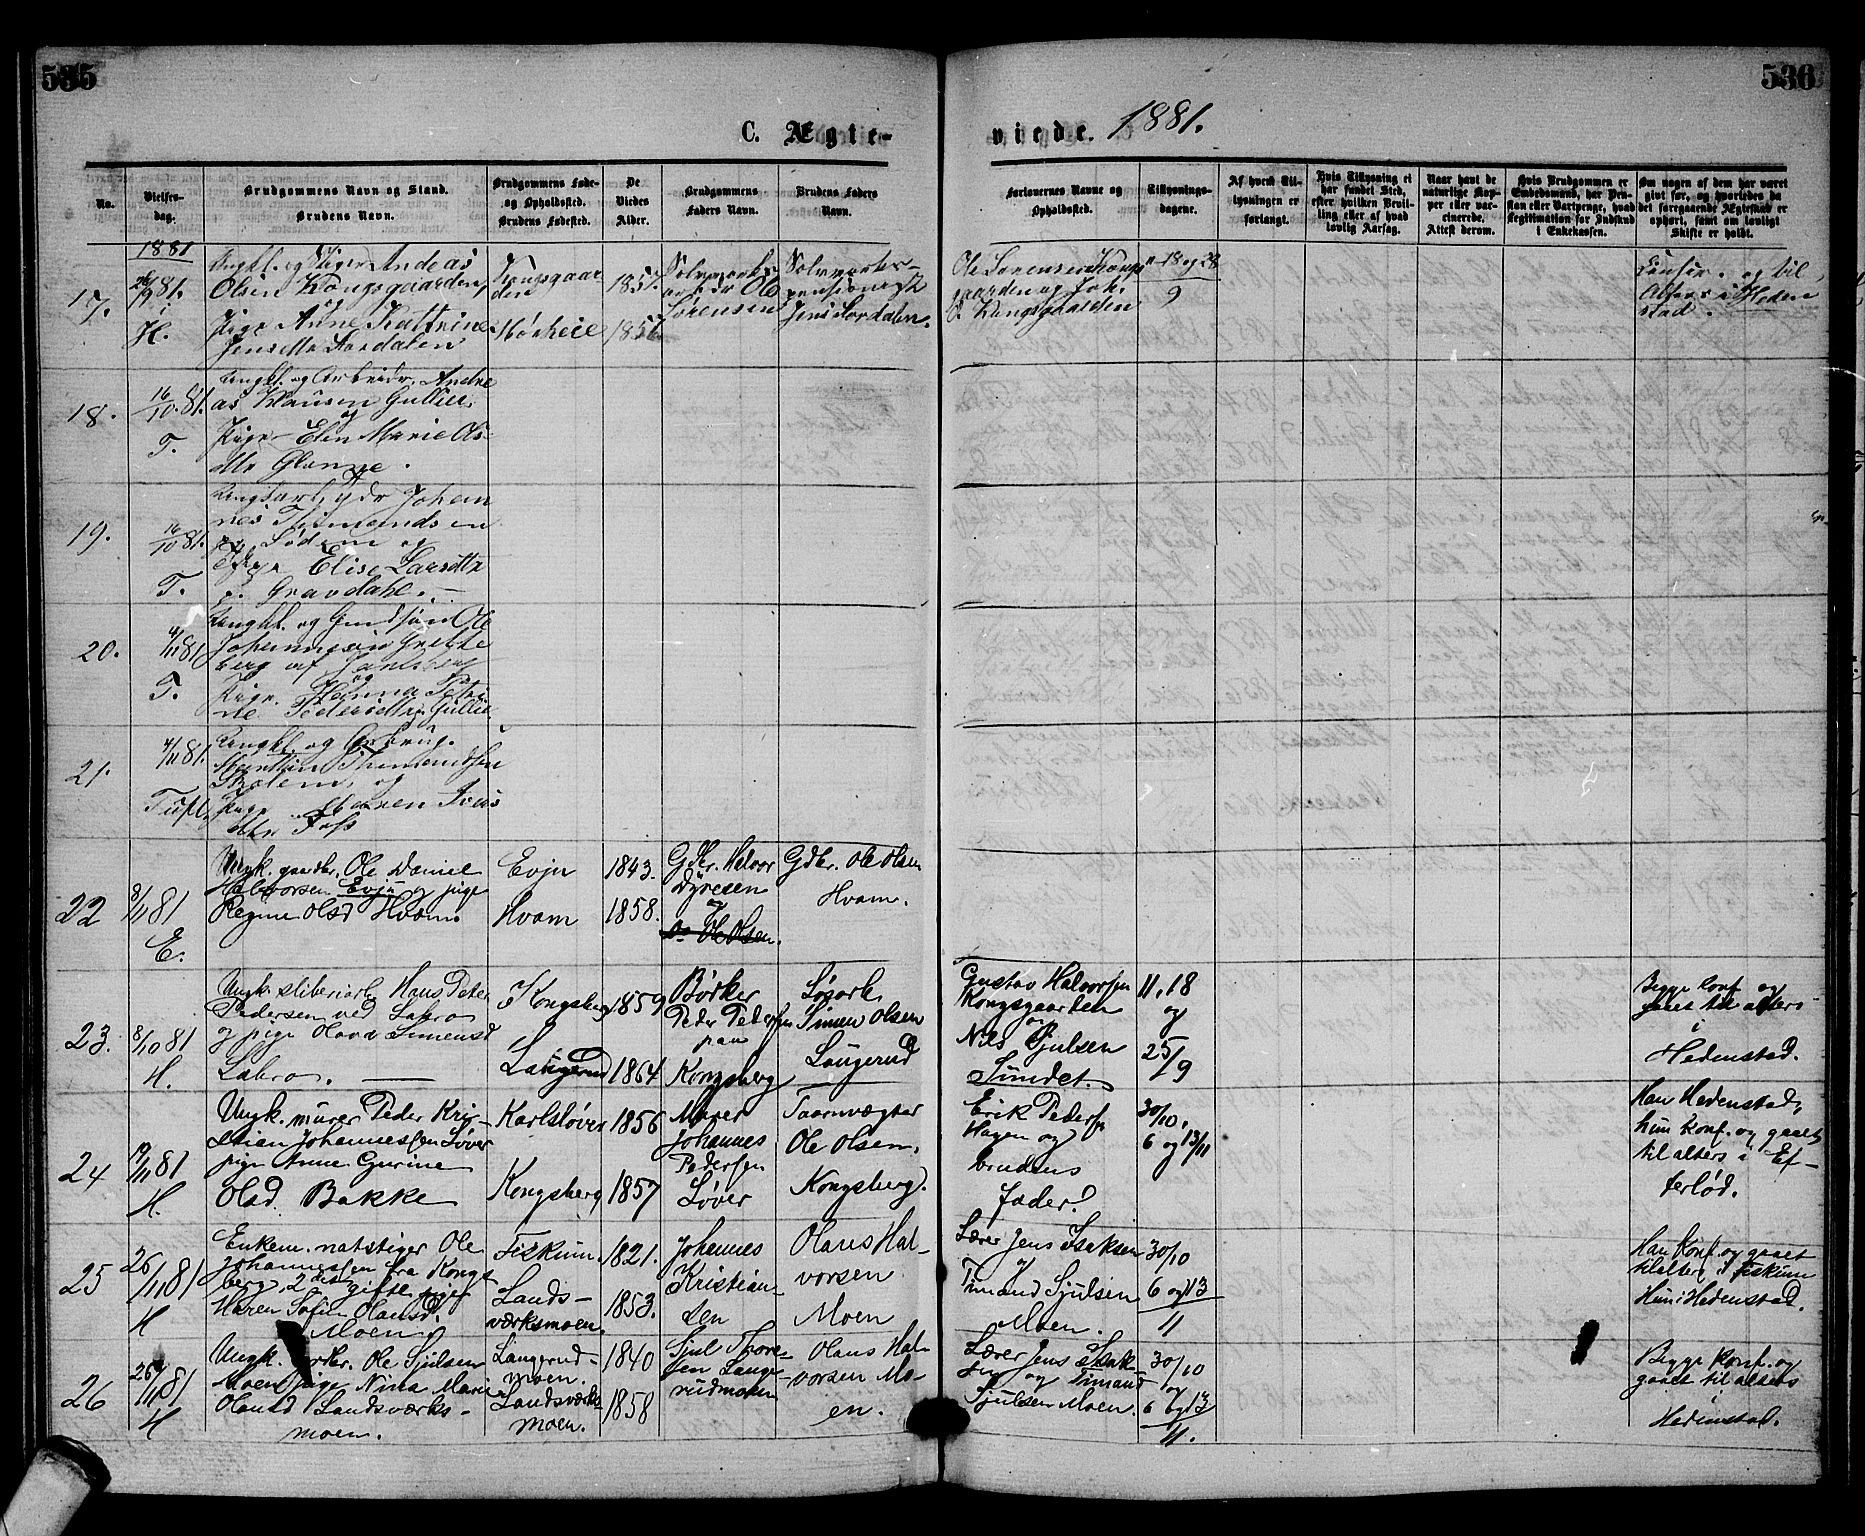 535
536
C. Ægte-
viede. 1881.
No.
Vielses-
dag.
Brudgommens Navn og Stand.
Brudens Navn.
Brudgommens Føde-
og Opholdssted.
Brudens Fødested.
De
Viedes
Alder.
Brudgommens
Faders Navn.
Brudens Faders
Navn.
Forlovernes Navne og
Opholdssted.
Tillysnings-
dagene.
Af hvem Til-
lysningen er
forlangt.
Hvis Tillysning ei
har fundet Sted,
efter hvilken Bevil-
ling eller af hvad
lovlig Aarsag.
Naar havt de
naturlige Kop-
per eller vac-
cinerede.
Attest derom.
Hvis Brudgommen er
Embedsmand, har Pen-
sion eller Vartpenge, hvad
Legitimation for Indskud
i Enkekassen.
Om nogen af dem har været
gift før, og hvorledes da
det foregaaende Ægteskab er
ophørt, samt om lovligt
Skifte er holdt.
1881
17.
26/9 81.
H.
Ungkl. og Andeas
Olsen Kongsgaarden,
og
Pige Anne Kathrine
Jensdtr Aardalen
Kongsgaar
den
Mørkeie
1857.
185
Sølvværks-
arbdr Ole
Sørensen
Sølvværks-
pensionist
Jens Aardalen.
Ole Sørensen Kongs
gaarden og Joh.
Kongsgaarden
18 og 28
9
og til
Alters i Heden
stad.
18.
16/10.81.
T.
Ungkl. og Arbeidr. Andre
as Klausen Gullier
og
Pige Elen Marie Ols
dtr Glenne.
19.
16/10 81.
T.
Johan
nes Thimands en
og
Pige Elise Larsdtr
Gravdahl.
20.
4/11 81
T.
Ungkl. og Ole
Johannesen
berg af Jarlsberg
og
Pige Hanna Petri
ne Pedersdtr Gullie
21.
4/11 81.
Tuft
Ungkl. og Gbrug.
Martin Thimandsen
og
Pige Maren Ivers
dtr Foss
22
8/11 81
E.
Ungk. gaardbr. Ole Daniel
Halvorsen Evju og pige
Regine Olsd Hvam.
Evju
Hvam
1843.
1858.
Gdbr. Halvor
Dyresen
og
Ole Olsen.
Gdbr. Ole Olsen
Hvam.
23.
8/10 81
H.
Ungk. sliberiarb Hans Peter
Pedersen ved Labro
og pige Olava Simensd
Labro.
Kongsberg
Langerud
1859
1864
Børker
Peder Pedersen
paa
Kongsberg
Løsarb
Simen Olsen
Langerud
Gustav Halvorsen
Kongsgaarden
og
Nils Gjulsen
Sundet.
11, 18
og
25/9
Begge konf. og
gaaet til alters
i
Hedenstad.
24
19/11 81
H.
Ungk. murer Peder Kri-
stian Johannessen Løver
pige Anne Gurine
Olsd. Bakke
Karlsløver
Kongsberg
1856
1857
Murer
Johannes
Pedersen
Løver
Taarnvægter
Ole Olsen.
Kongsberg.
Erik Peders
Hagen og
brudens
fader.
30/10,
6 og 13/11
Han Hedenstad,
hun konf. og gaaet
til alters i Ef-
terlød.
25
26/11 81
H
Enkem. natstiger Ole
Johannessen fra Kongs
berg, 2det gifte pige
Maren Sofie Olausd.
Moen.
Fiskum
Lands-
værksmoen.
1821.
1853.
Johannes
Kristian-
sen
Olaus Hal-
vorsen
Moen
Lærer Jens Isaksen
og
Timand Sjulsen
Moen.
30/10
6 og 13
11
Han konf. og gaaet
til alters i Fiskum
Hun i Hedenstad.
26
26/11 81
H
Ungk. Ole Sjulsen
Moen pige Nina Marie
Olausd Landsværks-
moen.
Langerud-
moen.
Landsværks-
moen.
1840
1858
Sjul Thore-
sen Lange-
rudmoen
Olaus Hal-
vorsen Mo-
en.
Lærer Jens Isak-
sen og Timand
Sjulsen Moen.
30/10
og
6 og 13
11.
Begge konf. og
gaaet til alters
i
Hedenstad.